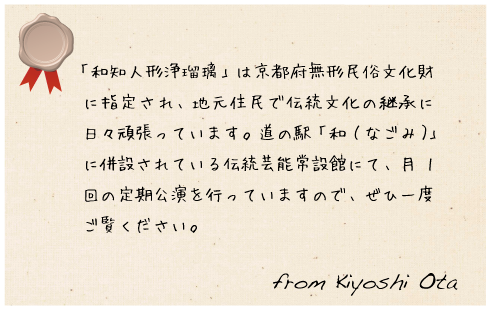 「和知人形浄瑠璃」は京都府無形民俗文化財
に指定され、地元住民で伝統文化の継承に
日々頑張っています。道の駅「和(なごみ)」
に併設されている伝統芸能常設館にて、月1
回の定期公演を行っていますので、ぜひ一度
ご覧ください。
from Kiyoshi Ota